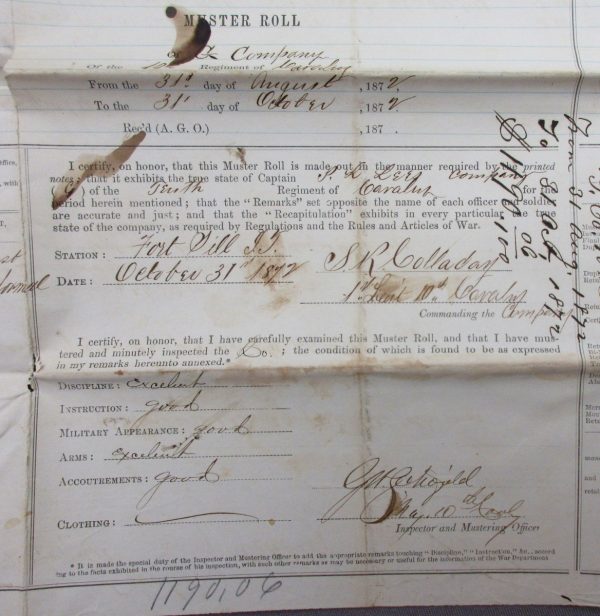 MUSTER ROLL
of G Company
Of the 10th Regiment of Cavalry
From the 31st day of August, 1872.
To the 31st day of October, 1872.
Rec'd (A. G. O.) , 187 .
I certify, on honor, that this Muster Roll is made out in the manner required by the printed
notes; that it exhibits the true state of Captain P. L. Lee's Company
(G) of the Tenth Regiment of Cavalry for the
period herein mentioned; that the "Remarks" set opposite the name of each officer and soldier
are accurate and just; and that the "Recapitulation" exhibits in every particular the true
state of the company, as required by Regulations and the Rules and Articles of War.
STATION: Fort Sill I.T.
DATE: October 31st 1872
S. R. Colladay
1st Lieut 10th Cavalry
Commanding the Company
I certify, on honor, that I have carefully examined this Muster Roll, and that I have mus-
tered and minutely inspected the Co.; the condition of which is found to be as expressed
in my remarks hereunto annexed.*
DISCIPLINE: Excellent
INSTRUCTION: good
MILITARY APPEARANCE: good
ARMS: Excellent
ACCOUTREMENTS: good
CLOTHING:
G. W. Schofield
Maj. 10th Cavly
Inspector and Mustering Officer
* It is made the special duty of the Inspector and Mustering Officer to add the appropriate remarks touching "Discipline," "Instruction," &c., accord
ing to the facts exhibited in the course of his inspection, with such other remarks as may be necessary or useful for the information of the War Department
1190,06
From 31 Aug, 1872
To 31 Oct, 1872